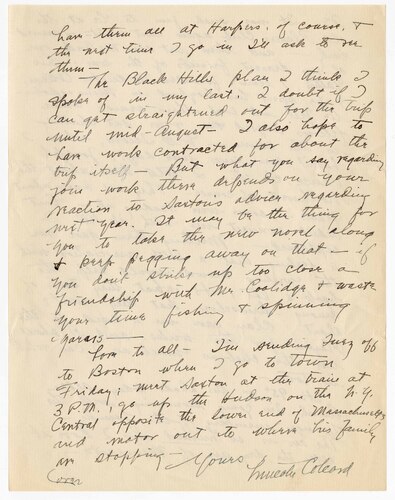 have them all at Harpers, of course, &
the next time I go in I'll ask to see
them—
The Black Hills plan I think I
spoke of in my last. I doubt if I
can get straightened out for the trip
until mid-August— I also hope to
have work contracted for about the
trip itself— But what you say regarding
your work there depends on your
reaction to Saxton's advice regarding
next year. It may be the thing for
you to take the new novel along
& keep pegging away on that — if
you don't strike up too close a
friendship with Mr. Coolidge & waste
your time fishing & spinning
yarns—
Love to all— I'm sending Inez off
to Boston when I go to town
Friday; meet Saxton at the train at
3 P.M., go up the Hudson on the N.Y.
Central opposite the lower end of Massachusetts
and motor out to where his family
are stopping— Yours
Lincoln Colcord
(over